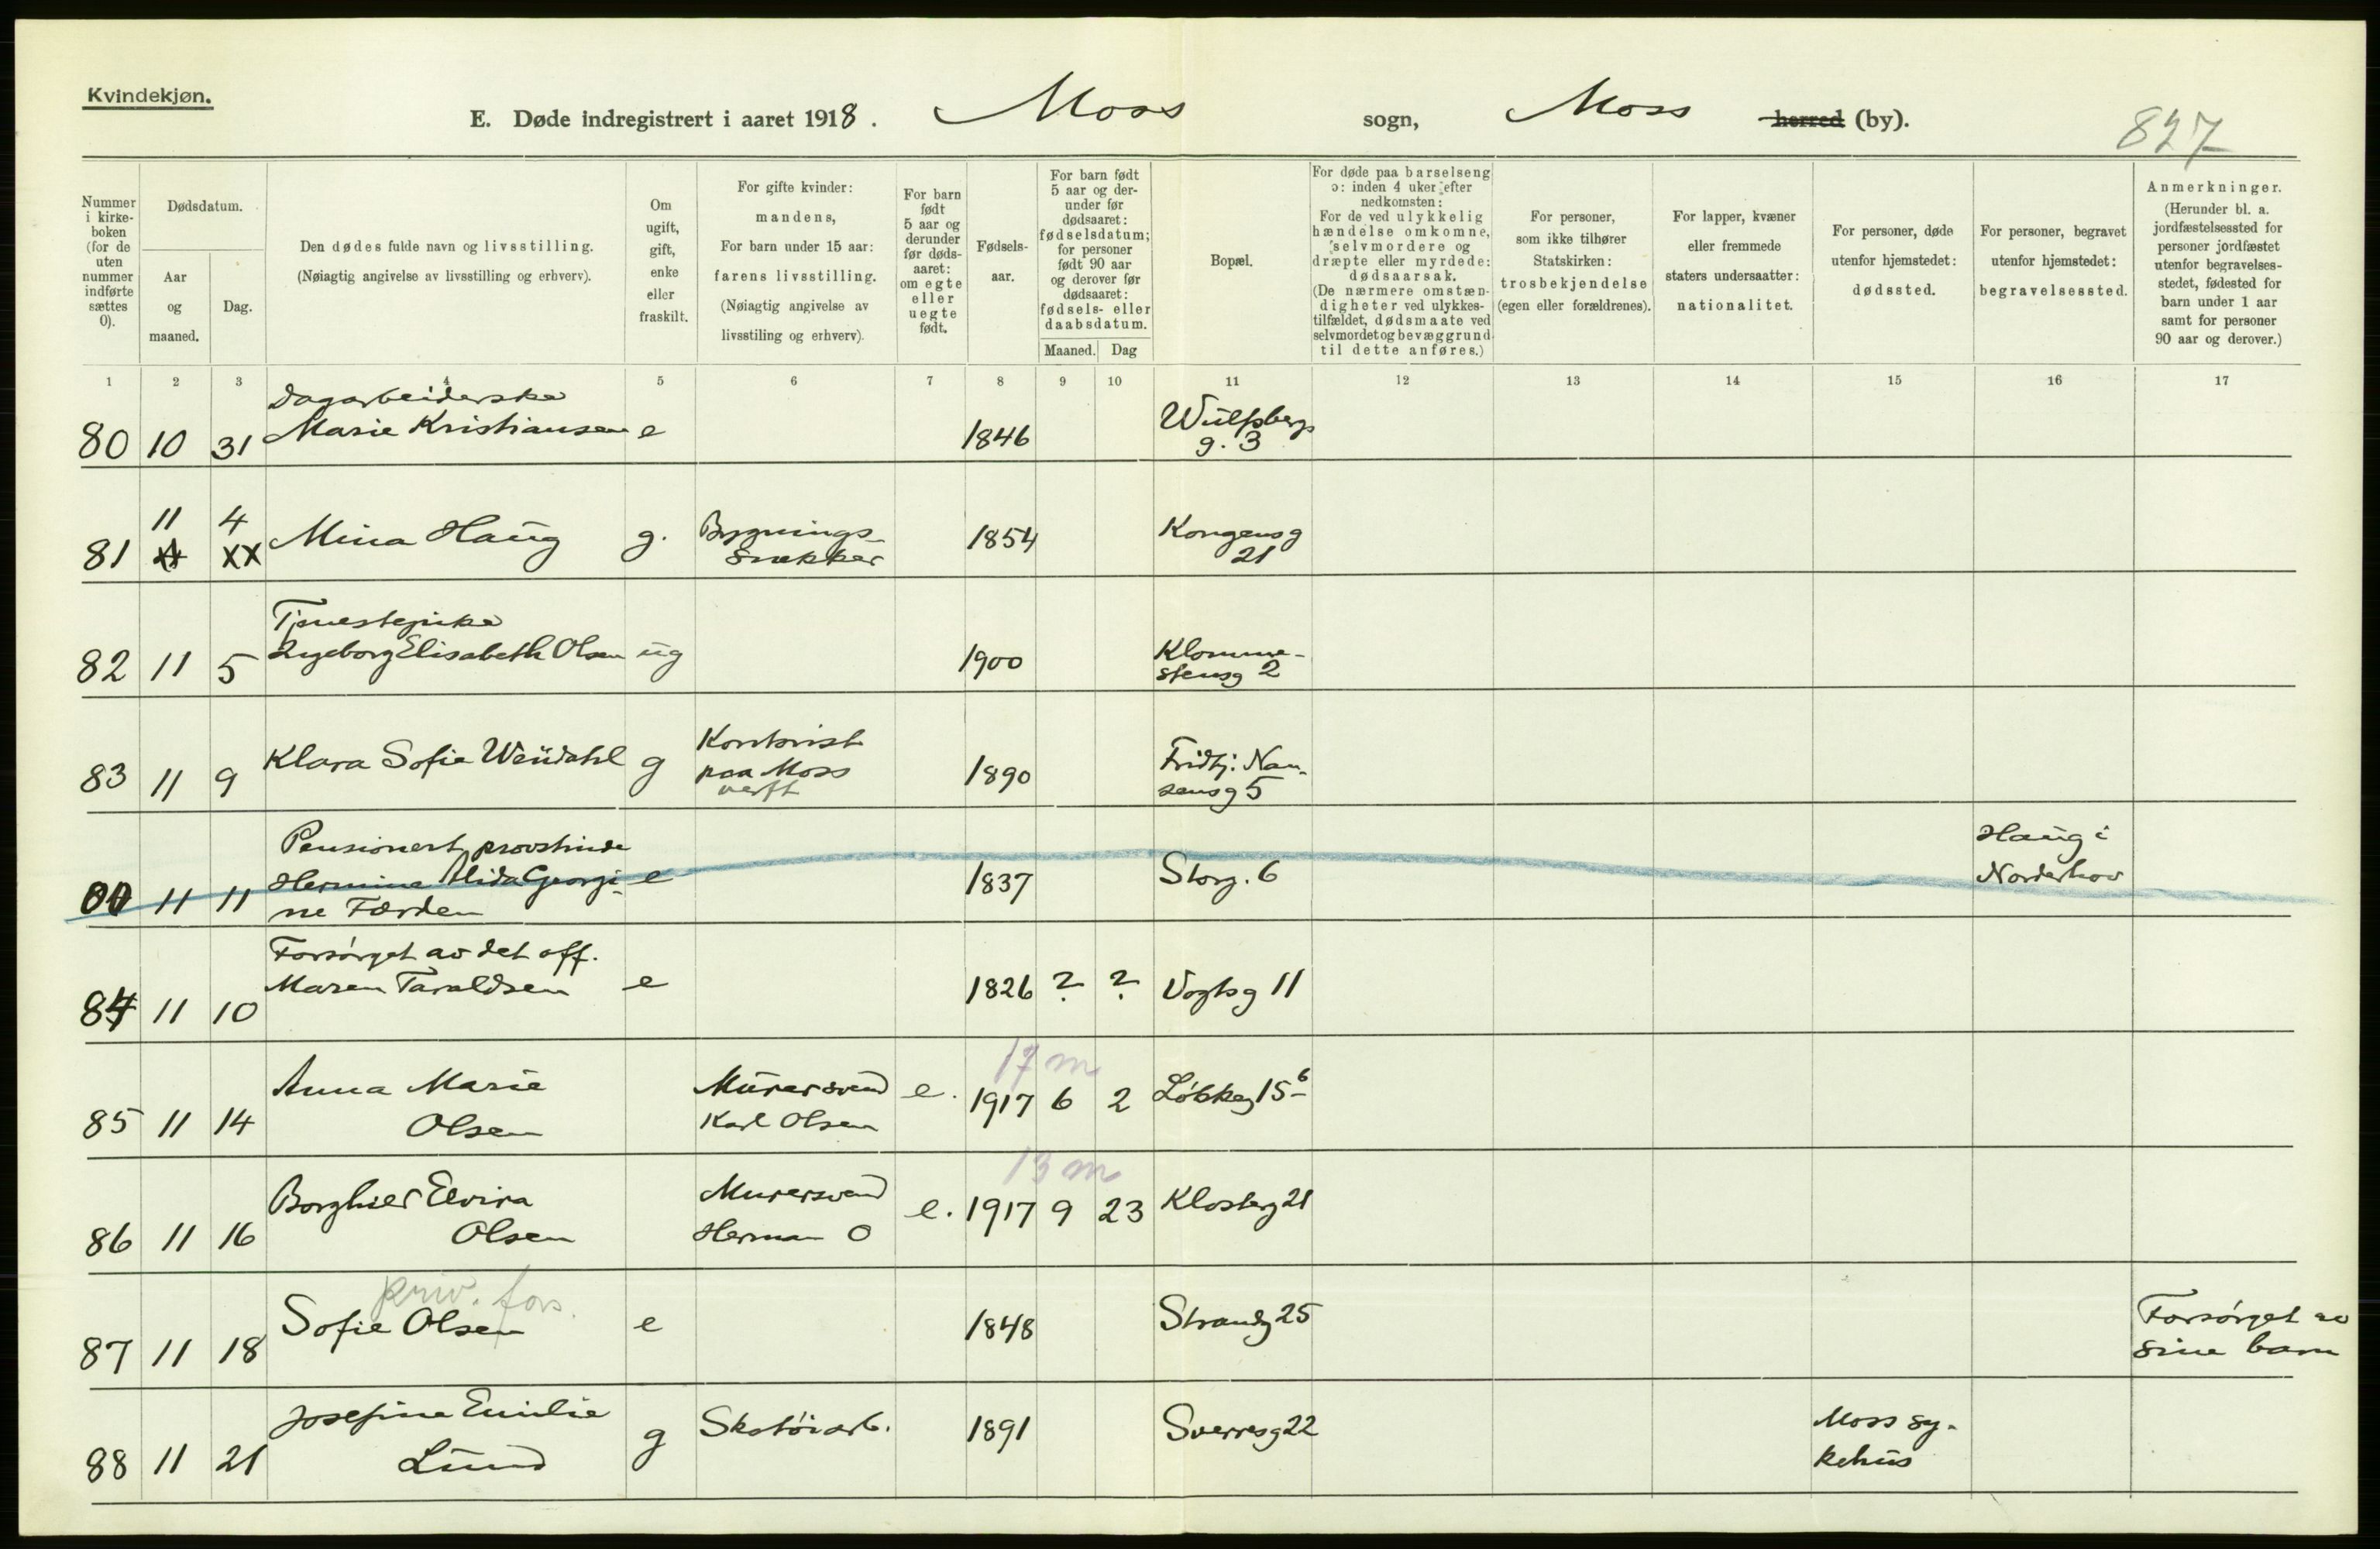 Kvindekjøn.
E. Døde indregistrert i aaret 1918. Moss sogn, Moss herred (by).
827
Nummer i kirke- boken (for de uten nummer indførte sættes 0).
Dødsdatum.
Aar og maaned.
Dag.
Den dødes fulde navn og livsstilling.
(Nøiagtig angivelse av livsstilling og erhverv).
Om ugift, gift, enke eller fraskilt.
For gifte kvinder:
mandens,
For barn under 15 aar:
farens livsstilling.
(Nøiagtig angivelse av
livsstiling og erhverv).
For barn født 5 aar og derunder før døds- aaret: om egte eller uegte født.
Fødsels- aar.
For barn født 5 aar og der- under før dødsaaret: fødselsdatum; for personer født 90 aar og derover før dødsaaret: fødsels- eller daabsdatum.
Maaned. Dag
Bopæl.
For døde paa barselseng
ɔ: inden 4 uker efter
nedkomsten:
For de ved ulykkelig
hændelse omkomne,
selvmordere og
dræpte eller myrdede:
dødsaarsak.
(De nærmere omstæn-
digheter ved ulykkes-
tilfældet, dødsmaate ved
selvmordet og bevæggrund
til dette anføres.)
For personer,
som ikke tilhører
Statskirken:
trosbekjendelse
(egen eller forældrenes).
For lapper, kvæner
eller fremmede
staters undersaatter:
nationalitet.
For personer, døde
utenfor hjemstedet:
dødssted.
For personer, begravet
utenfor hjemstedet:
begravelsessted.
Anmerkninger.
(Herunder bl. a.
jordfæstelsessted for
personer jordfæstet
utenfor begravelses-
stedet, fødested for
barn under 1 aar
samt for personer
90 aar og derover.)
1 2 3 4 5 6 7 8 9 10 11 12 13 14 15 16 17
Dagarbeiderske
80 10 31 Marie Kristiansen e 1846 Wülfsbergs
g. 3
11 4
81 XX Mina Haug g. Bygnings- 1854 Kongensg
snekker 21
Tjenestepike
82 11 5 Ingeborg Elisabeth Olsen ug 1900 Klomme-
stensg 2
83 11 9 Klara Sofie Wendahl g Kontorist 1890 Fridtj. Nan-
paa Moss sensg 5
verft
Pensionert provstinde Haug i
00 11 11 Hermine Alida Georgi- e 1837 Storg. 6 Norderhov
ne Færden
Forsørget av det off.
84 11 10 Maren Taraldsen e 1826 ? ? Vogtsg 11
17 m
85 11 14 Anna Marie Murersvend e. 1917 6 2 Løkkeg 15 b
Olsen Karl Olsen
13 m
86 11 16 Borghild Elvira Murersvend e. 1917 9 23 Klosterg 21
Olsen Herman O
priv. fors.
87 11 18 Sofie Olsen e 1848 Strandg 25 Forsørget av
sine barn
88 11 21 Josefine Emilie g Skotøiarb. 1891 Sverresg 22 Moss sy-
Lund kehus